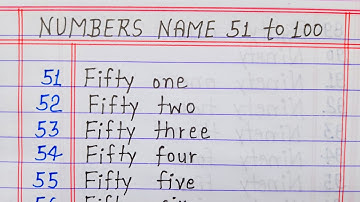 NUMBERS NAME 51 to 100
51 Fifty one
52 Fifty two
53 Fifty three
54 Fifty four
55 Fifty five